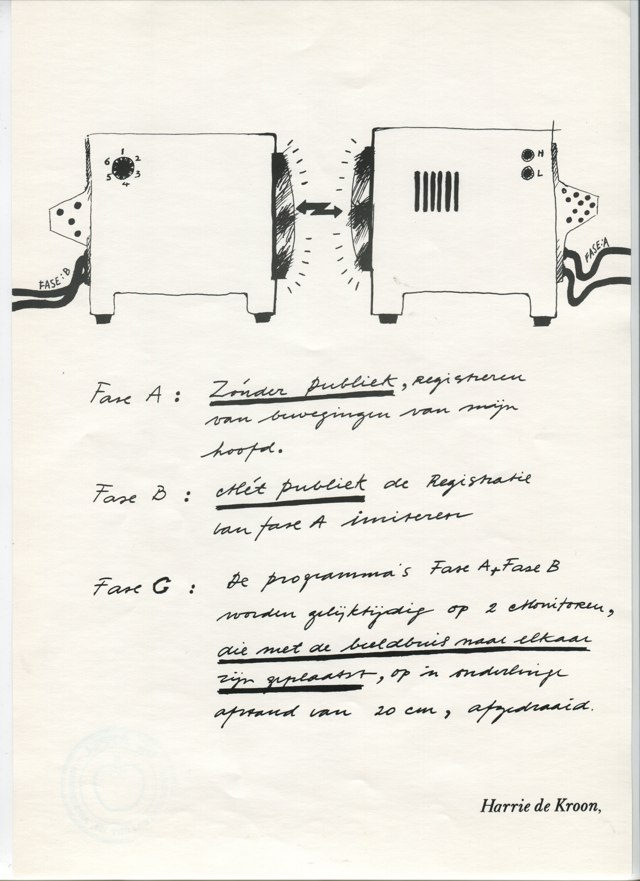 1
6 2
5 3
4
H
L
FASE:B
FASE:A
Fase A : Zónder publiek, registreren
van bewegingen van mijn
hoofd.
Fase B : Mét publiek de Registratie
van fase A imiteren
Fase C : De programma's Fase A+Fase B
worden gelijktijdig op 2 Monitoren,
die met de beeldbuis naar elkaar
zijn geplaatst, op in onderlinge
afstand van 20 cm, afgedraaid.
Harrie de Kroon,